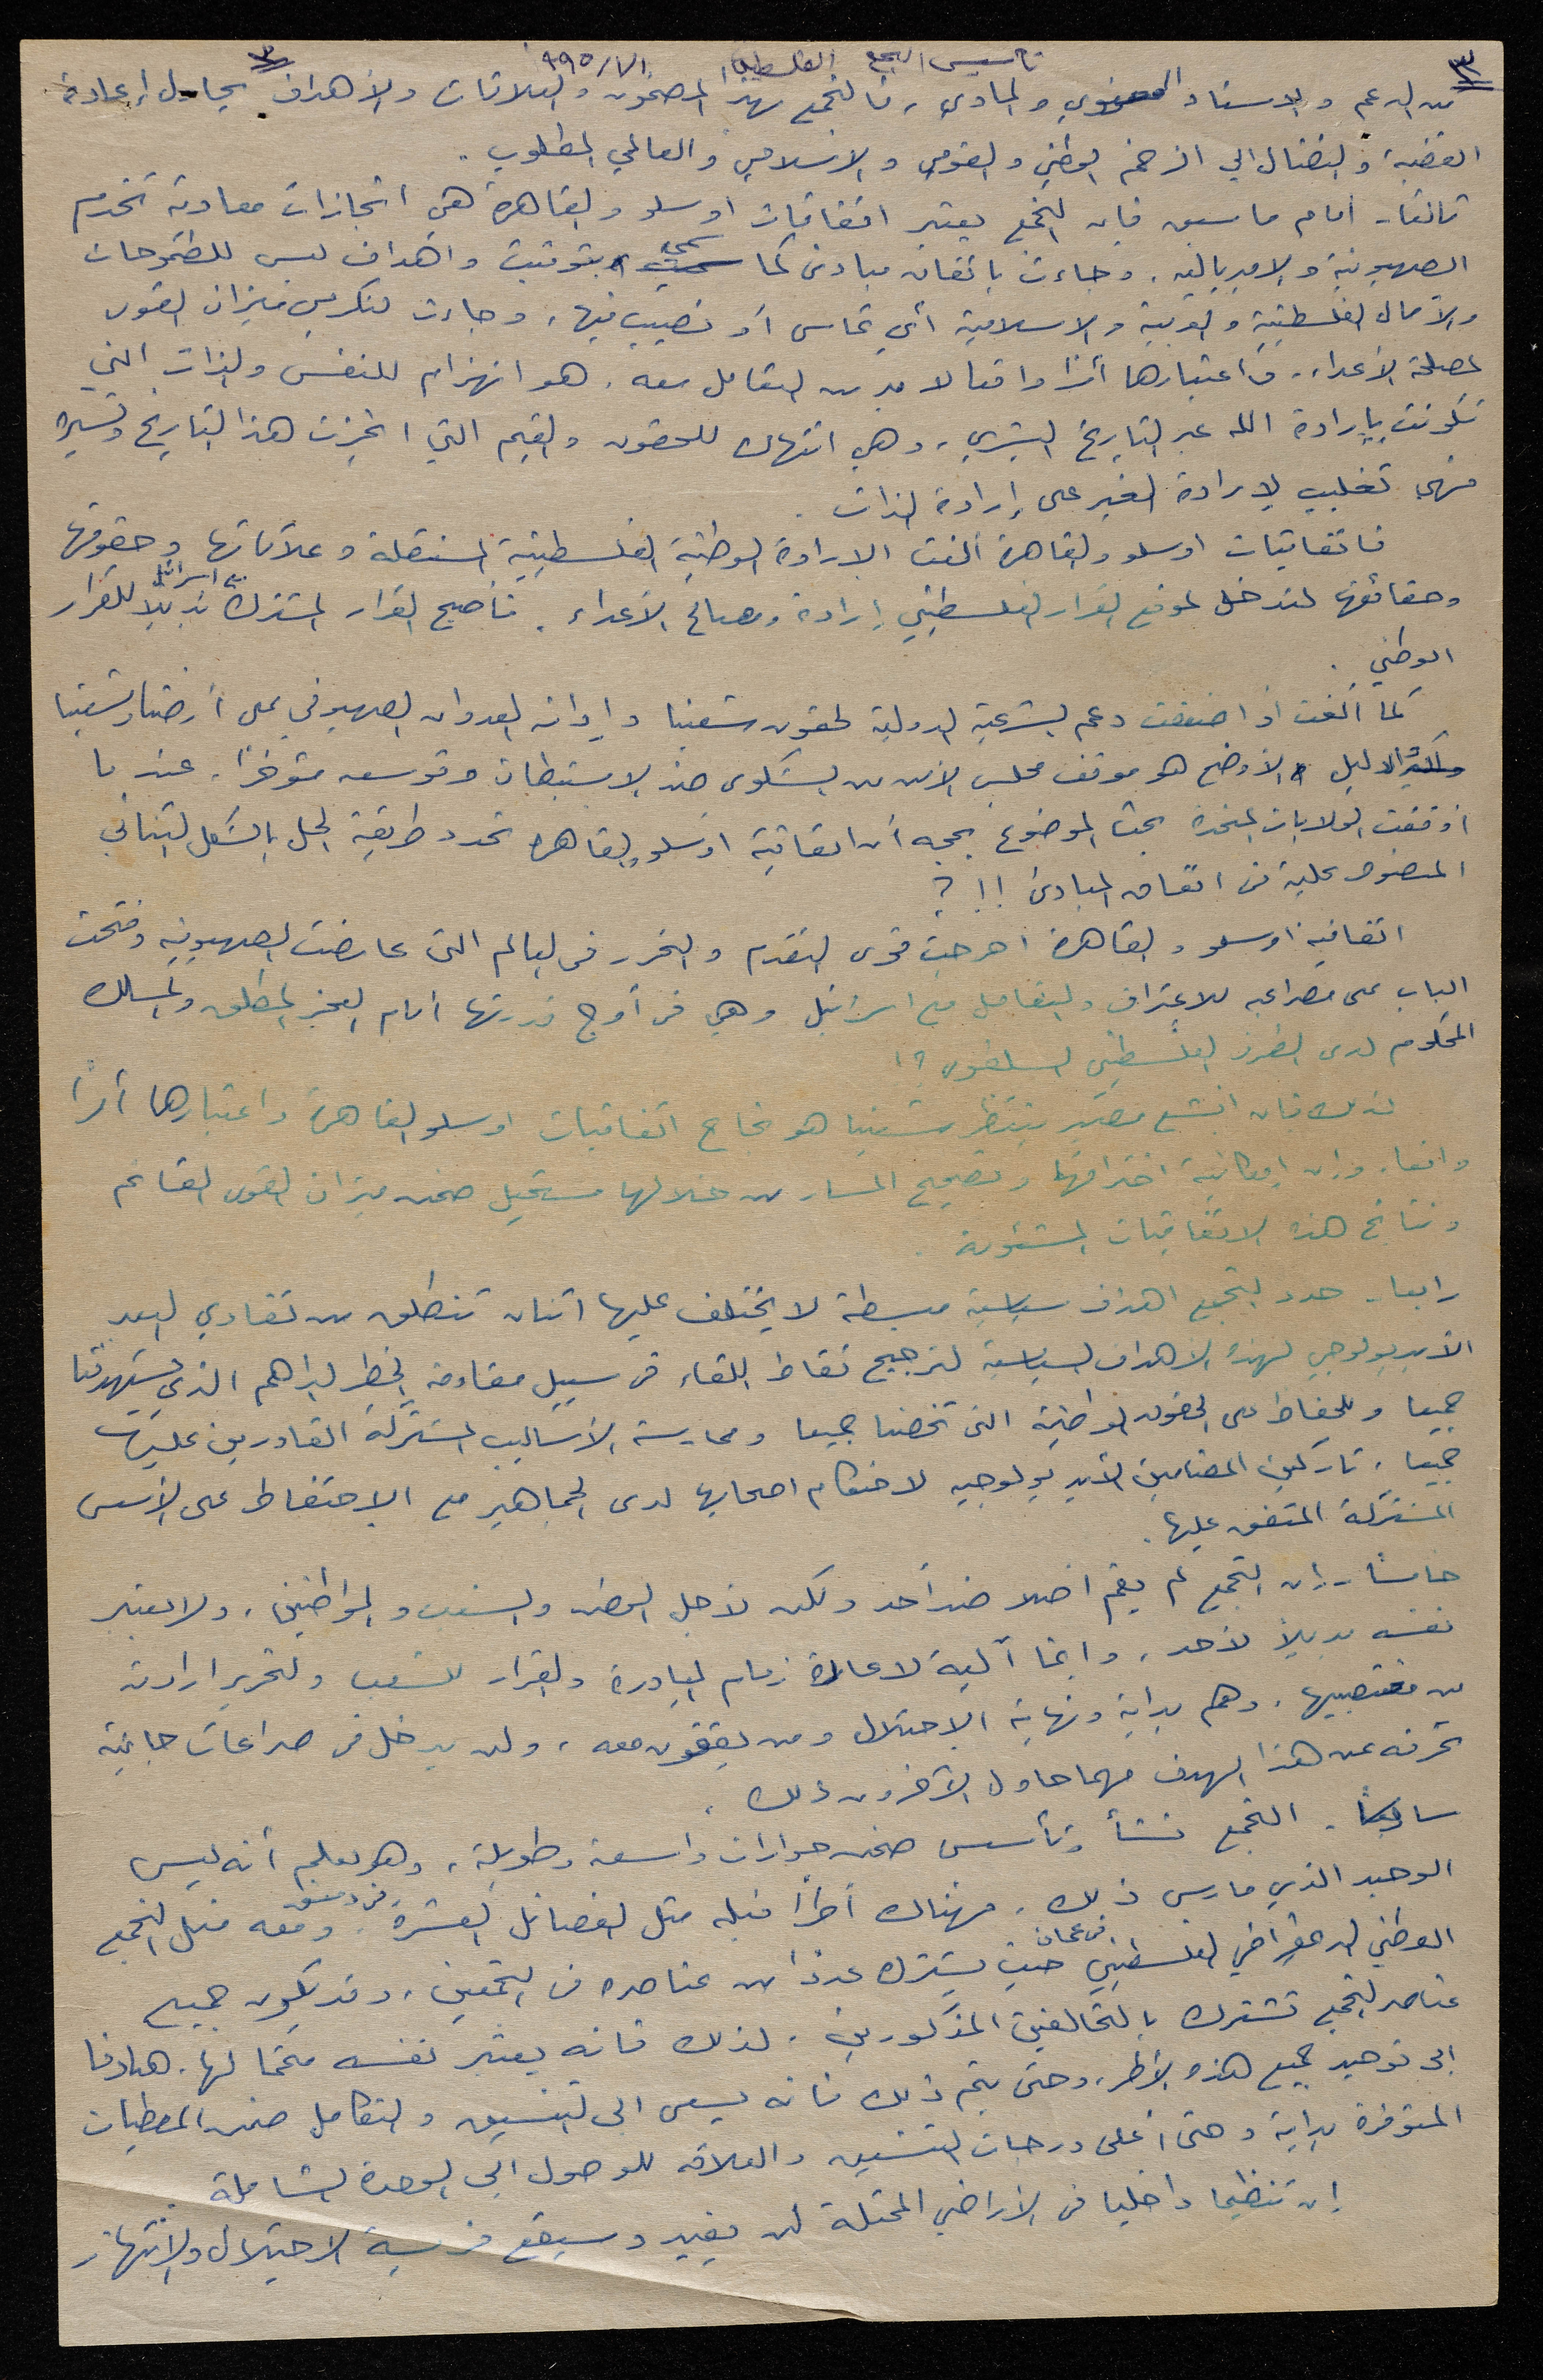 ٣ تأسيس التجمع الفلسطيني ٣
من الدعم والاسناد المعنوي والمادي، فالتجمع بهذا المضمون والعلاقات والأهداف يحاول إعادة
القضية والنضال الى الزخم الوطني والقومي والاسلامي والعالمي المطلوب.
ثالثا. أمام ما سبق فان التجمع يعتبر اتفاقيات اوسلو والقاهرة هي انجازات معادية تخدم
الصهيونية والامبريالية. وجاءت باتفاق مبادئ كما سمي بتوقيت واهداف ليس للطموحات
والآمال الفلسطينية والعربية والاسلامية أي تماس أو نصيب فيها، وجاءت لتكريس ميزان القوى
لمصلحة الأعداء. فاعتبارها أمرا واقعا لا بد من التعامل معه. هو انهزام للنفس والذات التي
تكونت بإرادة الله عبر التاريخ البشري، وهي انتهاك للحقوق والقيم التي انجزت هذا التاريخ وتسيره
فهي تغليب لإرادة الغير على إرادة الذات.
فاتفاقيات اوسلو والقاهرة ألغت الارادة الوطنية الفلسطينية المستقلة وعلاقاتها وحقوقها
وحقائقها لتدخل لموقع القرار الفلسطيني إرادة ومصالح الأعداء. فأصبح القرار المشترك مع اسرائيل بديلا للقرار
الوطني.
كما ألغت أو اضعفت دعم الشرعية الدولية لحقوق شعبنا وإدانة العدوان الصهيوني على أرضنا وشعبنا
والدليل الأوضح هو موقف مجلس الأمن من الشكوى ضد الاستيطان وتوسعه مؤخرا. عندما
أوقفت الولايات المتحدة بحث الموضوع بحجة أن اتفاقية اوسلو والقاهرة تحدد طريقة الحل بالشكل الثنائي
المنصوص عليه في اتفاق المبادئ !! ؟
اتفاقية اوسلو والقاهرة احرجت قوى التقدم والتحرر في العالم التي عارضت الصهيونية وفتحت
الباب على مصراعيه للاعتراف والتعامل مع اسرائيل وهي في أوج قدرتها أمام العجز المطلق والمسلك
المحكوم لدى الطرف الفلسطيني السلطوي ؟!
لذلك فان ابشع مصير ينتظر شعبنا هو نجاح اتفاقيات اوسلو القاهرة واعتبارها أمرا
واقعا. وإن إمكانية اختراقها وتصحيح المسار من خلالها مستحيل ضمن ميزان القوى القائم
ونتائج هذه الاتفاقيات المشئومة.
رابعا. حدد التجمع اهداف سياسية مبسطة لا يختلف عليها اثنان تنطلق من تفادي البعد
الأيديولوجي لهذه الأهداف السياسية لترجيح نقاط اللقاء في سبيل مقاومة الخطر الداهم الذي يستهدفنا
جميعا وللحفاظ على الحقوق الوطنية التي تخصنا جميعا وممارسة الأساليب المشتركة القادرين عليها
جميعا، تاركين المضامين الأيديولوجيه لاحتكام اصحابها لدى الجماهير مع الاحتفاظ على الأسس
المشتركة المتفق عليها.
خامسا. إن التجمع لم يقم اصلا ضد أحد ولكن لأجل الوطن والشعب والمواطنين، ولا يعتبر
نفسه بديلا لأحد، وانما آلية لاعادة زمام المبادرة والقرار للشعب ولتحرير ارادته
من مغتصبيها. وهم بداية ونهاية الاحتلال ومن يقفون معه، ولن يدخل في صراعات جانبية
تحرفه عن هذا الهدف مهما حاول الآخرون ذلك.
سادسا. التجمع نشأ وتأسس ضمن حوارات واسعة وطويلة، وهو يعلم أنه ليس
الوحيد الذي مارس ذلك. فهناك أطرا قبله مثل الفصائل العشرة في دمشق ومعه مثل التجمع
الوطني الديمقراطي الفلسطيني في عمان حيث يشترك عددا من عناصره في التجمعين، وقد يكون جميع
عناصر التجمع تشترك بالتحالفين المذكورين. لذلك فانه يعتبر نفسه متمما لها. هادفا
الى توحيد جميع هذه الأطر، وحتى يتم ذلك فانه يسعى الى التنسيق والتكامل ضمن المعطيات
المتوفرة بداية وحتى أعلى درجات التنسيق والعلاقه للوصول الى الوحدة الشاملة.
إن تنظيما داخليا في الأراضي المحتلة لن يفيد وسيقع فريسة الاحتلال والانتهاز